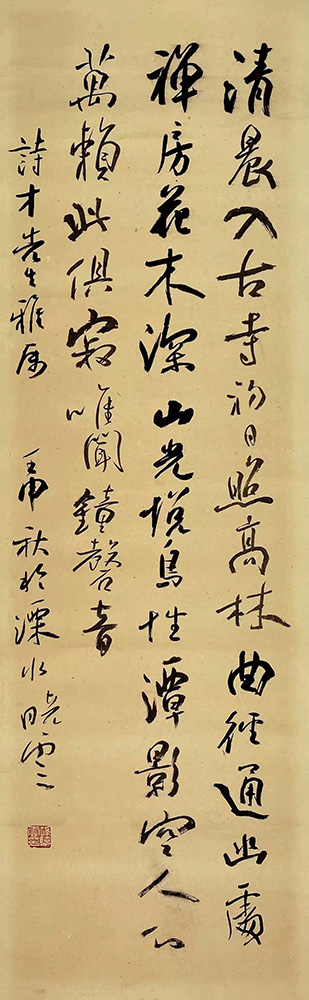 清晨入古寺初日照高林曲径通幽處
禅房花木深山光悦鳥性潭影空人心
萬賴此俱寂唯聞鐘磬音
詩才先生雅属 壬申秋於溧水晓雲